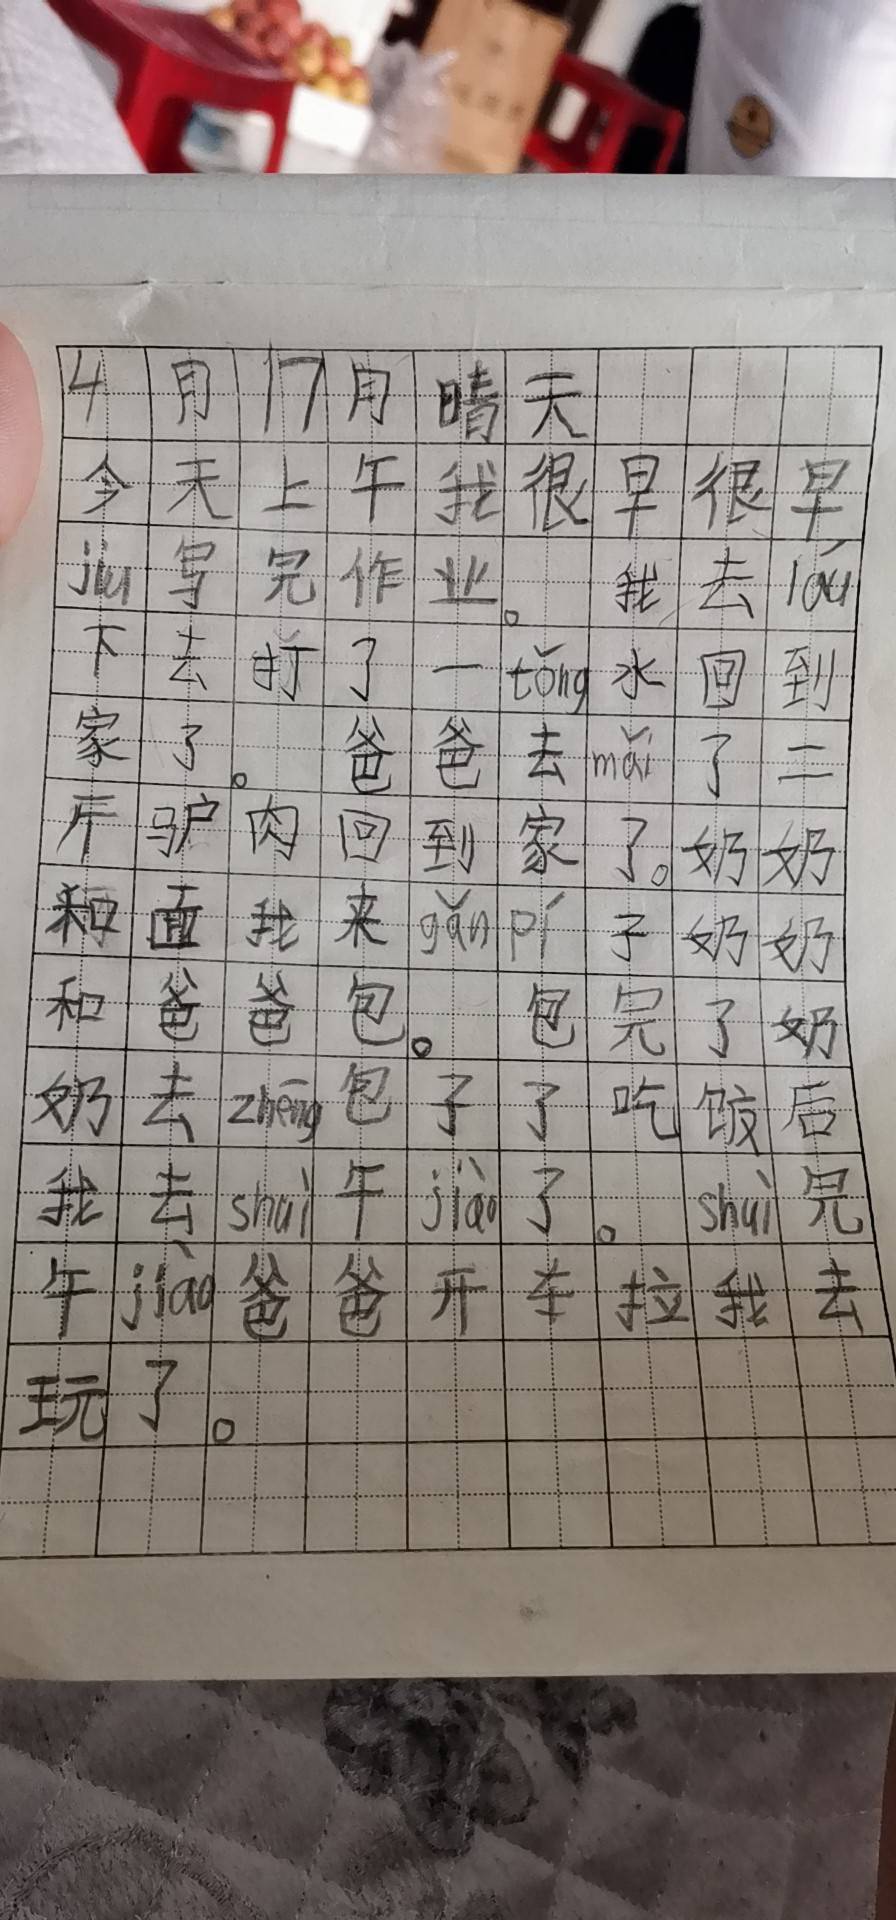 4月17月晴天
今天上午我很早很早
jiu写完作业。我去lóu
下去打了一tǒng水回到
家了。爸爸去mǎi了二
斤驴肉回到家了。奶奶
和面我来gǎn pí子奶奶
和爸爸包。包完了奶
奶去zhēng包子了吃饭后
我去shuì午jiào了。shuì完
午jiào爸爸开车拉我去
玩了。